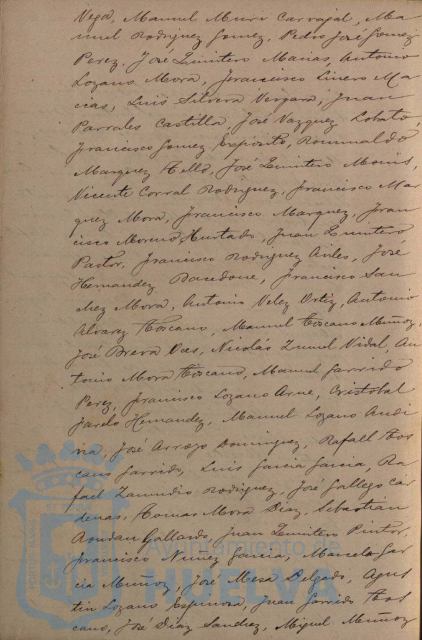 Vega, Manuel Muri Carvajal, Ma-
nuel Rodriguez Gomez, Pedro José Gomez
Perez, José Quintero Macias, Antonio
Lozano Mora, Francisco Linero Ma-
cias, Luis Silvera Vergara, Juan
Parrales Castilla, José Vazquez Lobato,
Francisco Gomez Esposito, Romualdo
Marquez Tello, José Quintero Monis,
Vicente Corral Rodriguez, Francisco Ma-
quez Mora, Francisco Marquez, Fran
cisco Moreno Hurtado, Juan Quintero
Pastor, Francisco Rodriguez Aviles, José
Hernandez Francisco San
chez Mora, Antonio Velez Ortiz, Antonio
Alvarez Toscano, Manuel Toscano Muñoz,
José Brera Nicolás Vidal, An
tonio Mora Toscano, Manuel Garrido
Perez, Francisco Lozano Cristobal
Hernandez, Manuel Lozano
na, José Arroyo Dominguez, Rafael Tos
cano Garrido, Luis Garcia Garcia, Ra
fael Zamudio Rodriguez, José Gallego Car
denas, Tomas Mora Diaz, Sebastian
Gallardo, Juan Quintero Pintor,
Francisco Nuñez Garcia, Marcelo Gar
cia Muñoz, José Mesa Delgado, Agus
tin Lozano Espinosa, Juan Garrido Tos
cano, José Diaz Sanchez, Miguel Muñoz
Ayuntamiento de
HUELVA